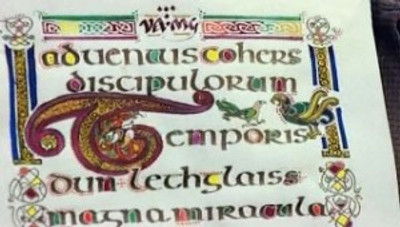 aduentus cohers
discipulorum
Temporis
dun·lethglaiss
magna miracula